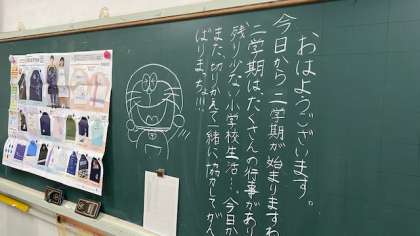 おはようございます。
今日から二学期が始まりますね
二学期はたくさんの行事があり
残り少ない小学校生活…今日か
また切りかえて一緒に協力してがん
ばりましょ!!!